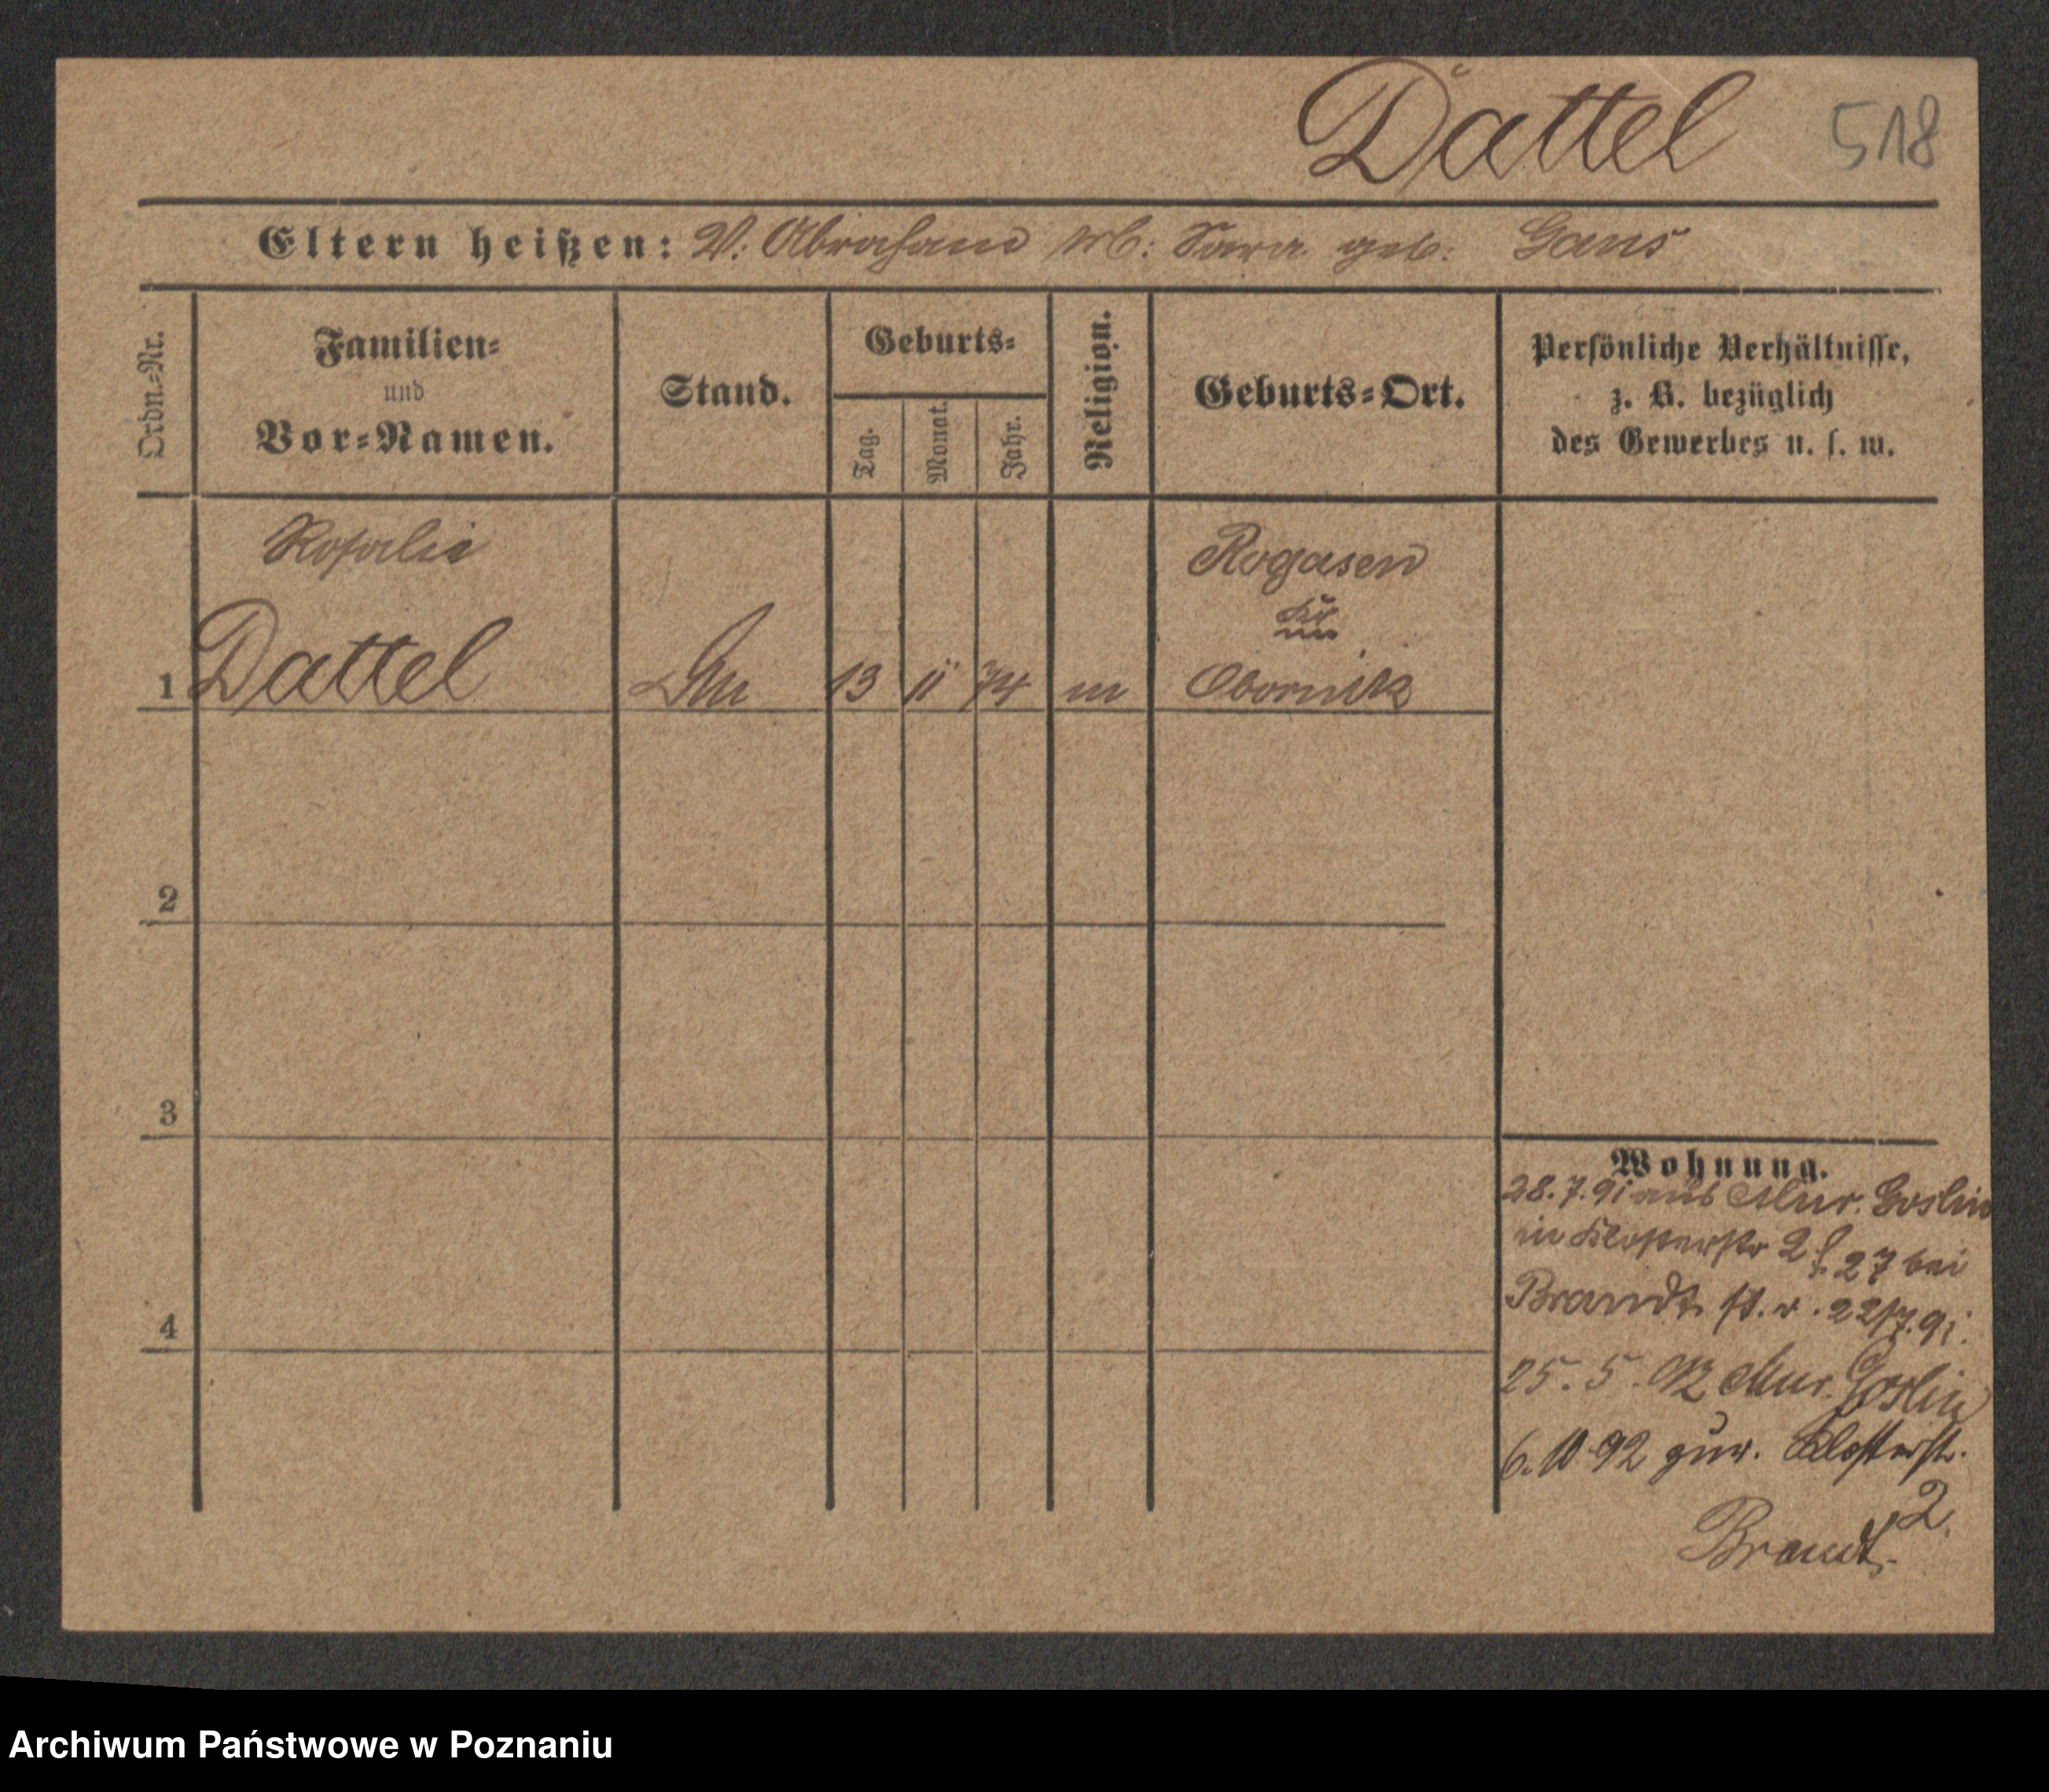 Dattel 518
Eltern heißen: V: Abraham M: Sara geb: Gans
Ordn.-Nr.
Familien-
und
Vor-Namen.
Stand.
Geburts-
Tag.
Monat.
Jahr.
Religion.
Geburts-Ort.
Persönliche Verhältnisse,
z. B. bezüglich
des Gewerbes u. s. w.
Rosalie
Dattel
1
13 11 74 m
Rogasen
Obornik
2
3
4
Wohnung.
28.7.91 aus Mur. Goslin
in Klosterstr 2 27 bei
Brandt st. v. 22/7.91.
25.5.92 Mur. Goslin
6.10.92 zur. Klosterstr.
2.
Brandt.
Archiwum Państwowe w Poznaniu